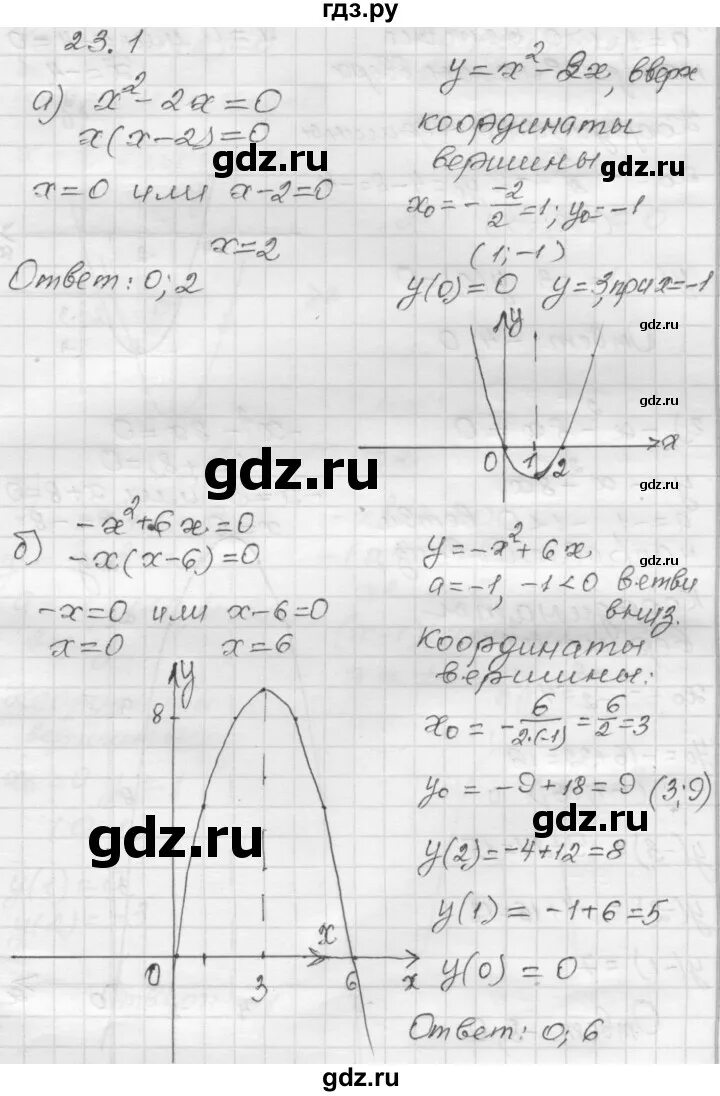 гдз.ру
23.1
а) x² - 2x = 0
x(x-2) = 0
x=0 или x-2=0
x=2
Ответ: 0; 2
y = x² - 2x, вверх
координаты
вершины
x₀ = - -2/2 = 1; y₀ = -1
(1; -1)
y(0) = 0 y = 3, при x = -1
y
x
0 1 2
б) -x² + 6x = 0
-x(x-6) = 0
-x=0 или x-6=0
x=0 x=6
y
8
x
0 3 6 x
y = -x² + 6x
a = -1, -1 < 0 ветви
вниз.
координаты
вершины:
x₀ = - 6/2·(-1) = 6/2 = 3
y₀ = -9 + 18 = 9 (3; 9)
y(2) = -4 + 12 = 8
y(1) = -1 + 6 = 5
y(0) = 0
Ответ: 0; 6
gdz.ru
gdz.ru
gdz.ru
gdz.ru
gdz.ru
gdz.ru
gdz.ru
gdz.ru
gdz.ru
gdz.ru
gdz.ru
gdz.ru
gdz.ru